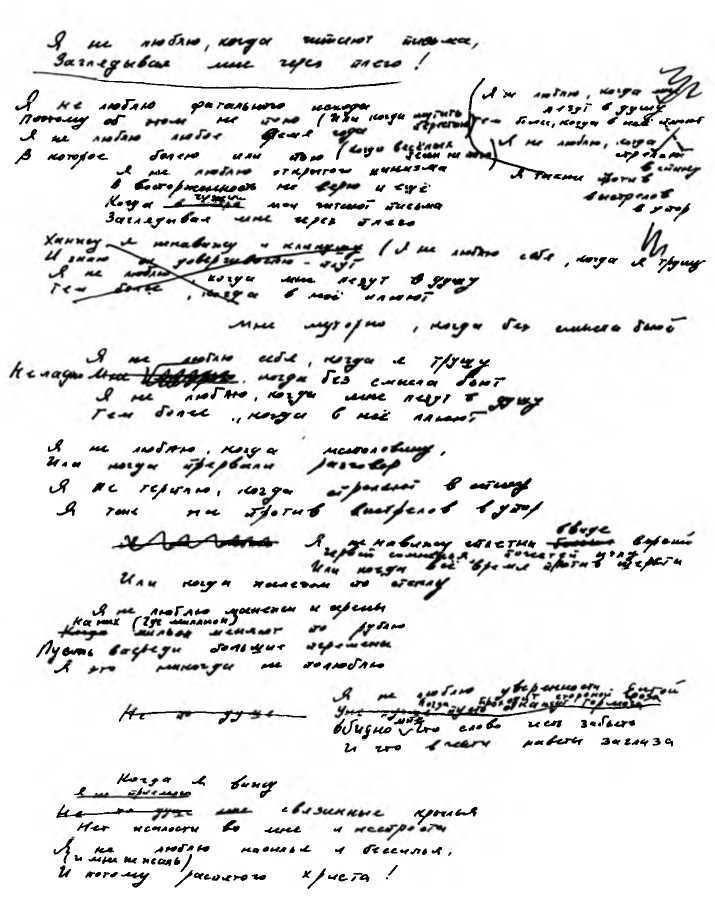 Я не люблю, когда читают письма,
Заглядывая мне через плечо!
Я не люблю фатального исхода
Поэтому об этом не пою (Или когда шутить
Я не люблю любое время года
В которое болею или пью (когда весёлых
Я не люблю открытого цинизма
В восторженность не верю и ещё
Когда чужие мои читают письма
Заглядывая мне через плечо
Я не люблю, когда мне
лезут в душу
Тем более, когда в неё плюют
Я не люблю, когда
стреляют
в спину
Я также против
выстрелов
в упор
Ханжу я ненавижу и
И знаю доверчивостью
(Я не люблю себя, когда я трушу
Я не люблю, когда мне лезут в душу
Тем более, когда в неё плюют
Мне муторно, когда без смысла бьют
Я не люблю себя, когда я трушу
Не лажу когда без смысла бьют
Я не люблю, когда мне лезут в душу
Тем более, когда в неё плюют
Я не люблю, когда наполовину,
Или когда прервали разговор
Я не терплю, когда стреляют в спину
Я тоже против выстрелов в упор
Я ненавижу сплетни в виде версий
Червей сомненья, почестей иглу
Или когда всё время против шерсти
Или когда железом по стеклу
Я не люблю манежи и арены
На них (Где миллион)
мильон меняют по рублю
Пусть впереди большие перемены
Я это никогда не полюблю
Я не люблю уверенности сытой
Когда
пусть откажут тормоза
Обидно мне что слово честь забыто
И что в чести наветы за глаза
Не по душе
Когда я вижу
Я не приемлю
Не по душе мне связанные крылья
Нет жалости во мне и неспроста
Я не люблю насилья и бессилья,
(и мне не жаль)
И потому распятого христа!